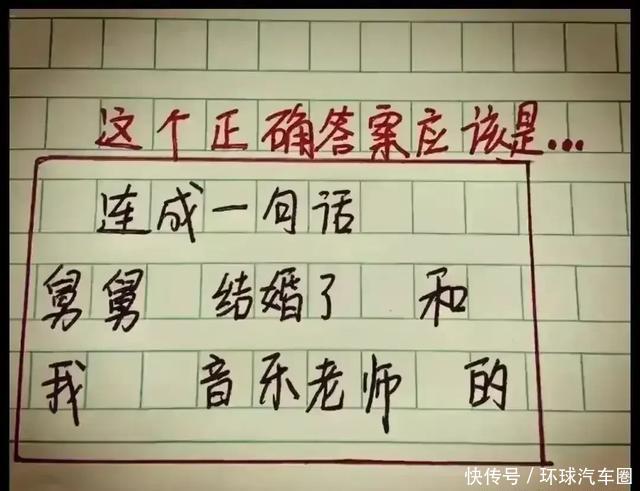 这个正确答案应该是...
连成一句话
舅舅 结婚了 和
我 音乐老师 的
快传号/环球汽车圈